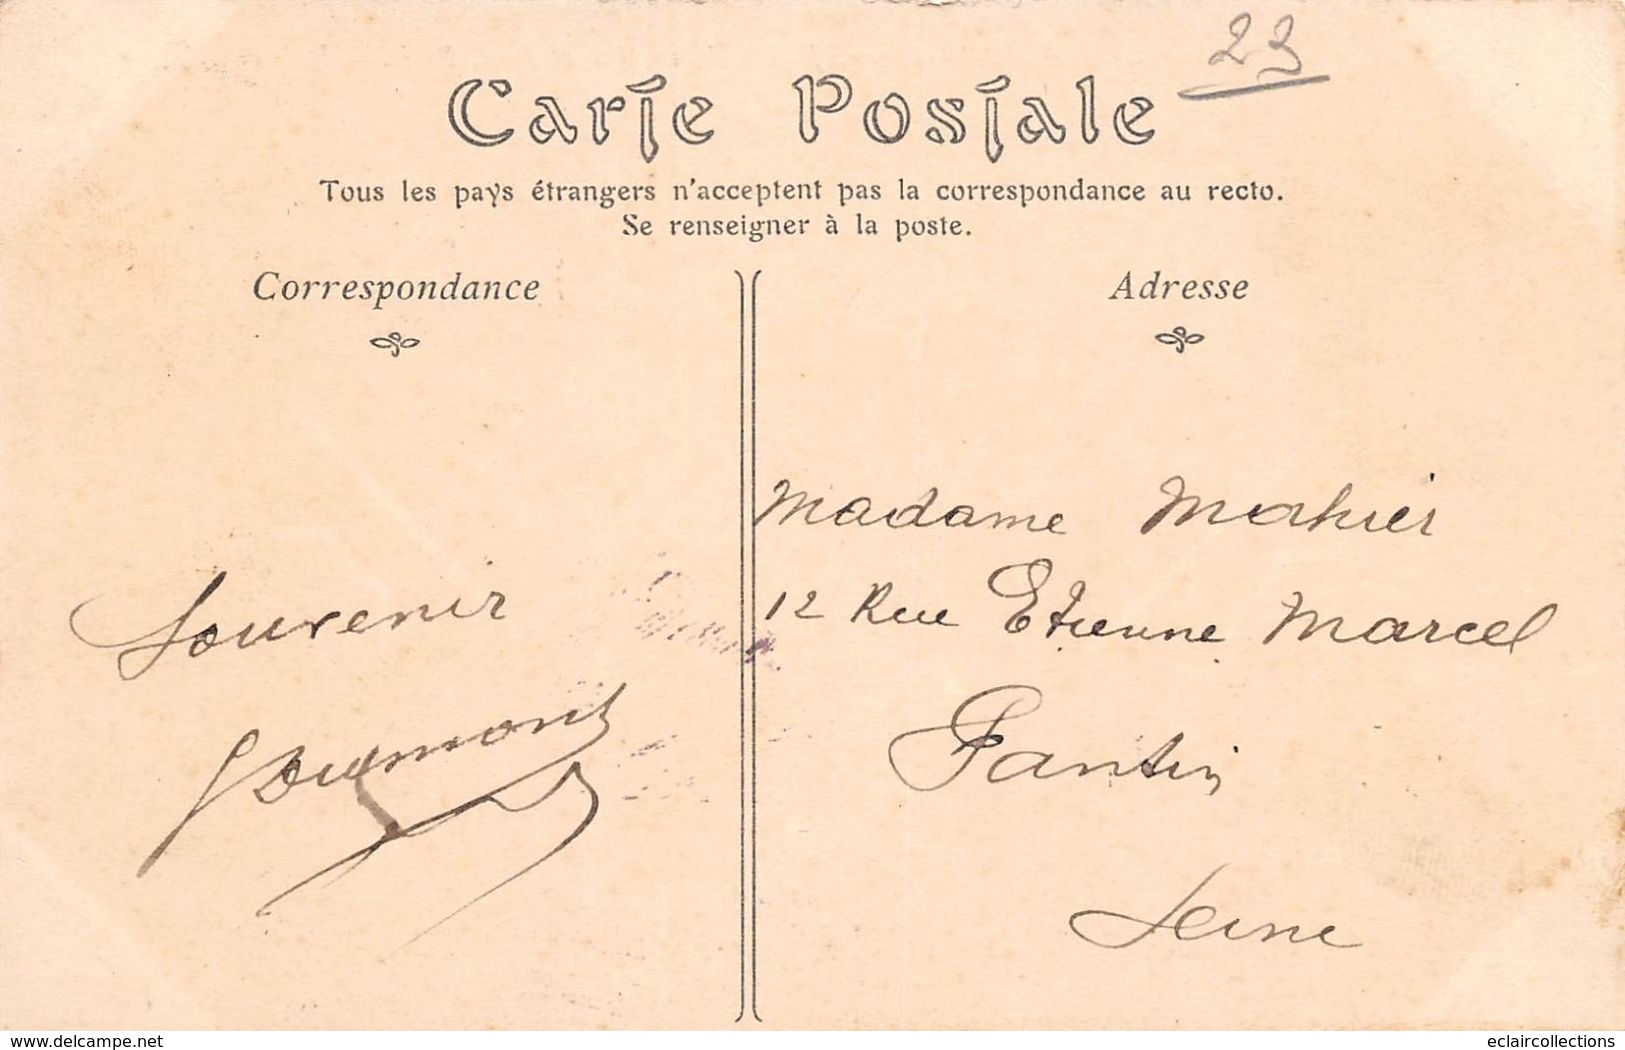 23
Carte Postale
Tous les pays étrangers n'acceptent pas la correspondance au recto.
Se renseigner à la poste.
Correspondance
Adresse
Souvenir
Dumont
Madame Mahier
12 Rue Etienne Marcel
Pantin
Seine
delcampe.net
eclaircollections